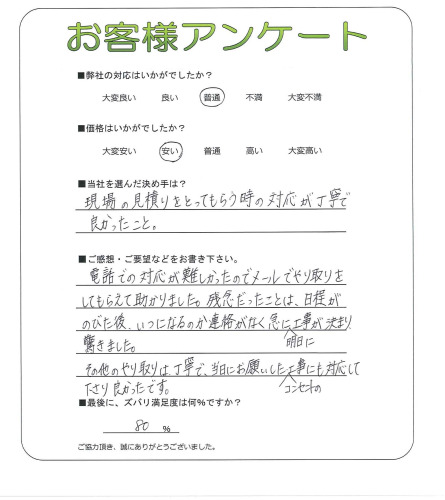 お客様アンケート
■弊社の対応はいかがでしたか？
大変良い 良い 普通 不満 大変不満
■価格はいかがでしたか？
大変安い 安い 普通 高い 大変高い
■当社を選んだ決め手は？
現場の見積りをとってもらう時の対応が丁寧で
良かったこと。
■ご感想・ご要望などをお書き下さい。
電話での対応が難しかったのでメールでやり取りを
してもらえて助かりました。残念だったことは、日程が
のびた後、いつになるのか連絡がなく急に工事が決まり
明日に
驚きました。
その他のやり取りは、丁寧で、当日にお願いした工事にも対応して
コンセントの
下さり良かったです。
■最後に、ズバリ満足度は何％ですか？
80 %
ご協力頂き、誠にありがとうございました。